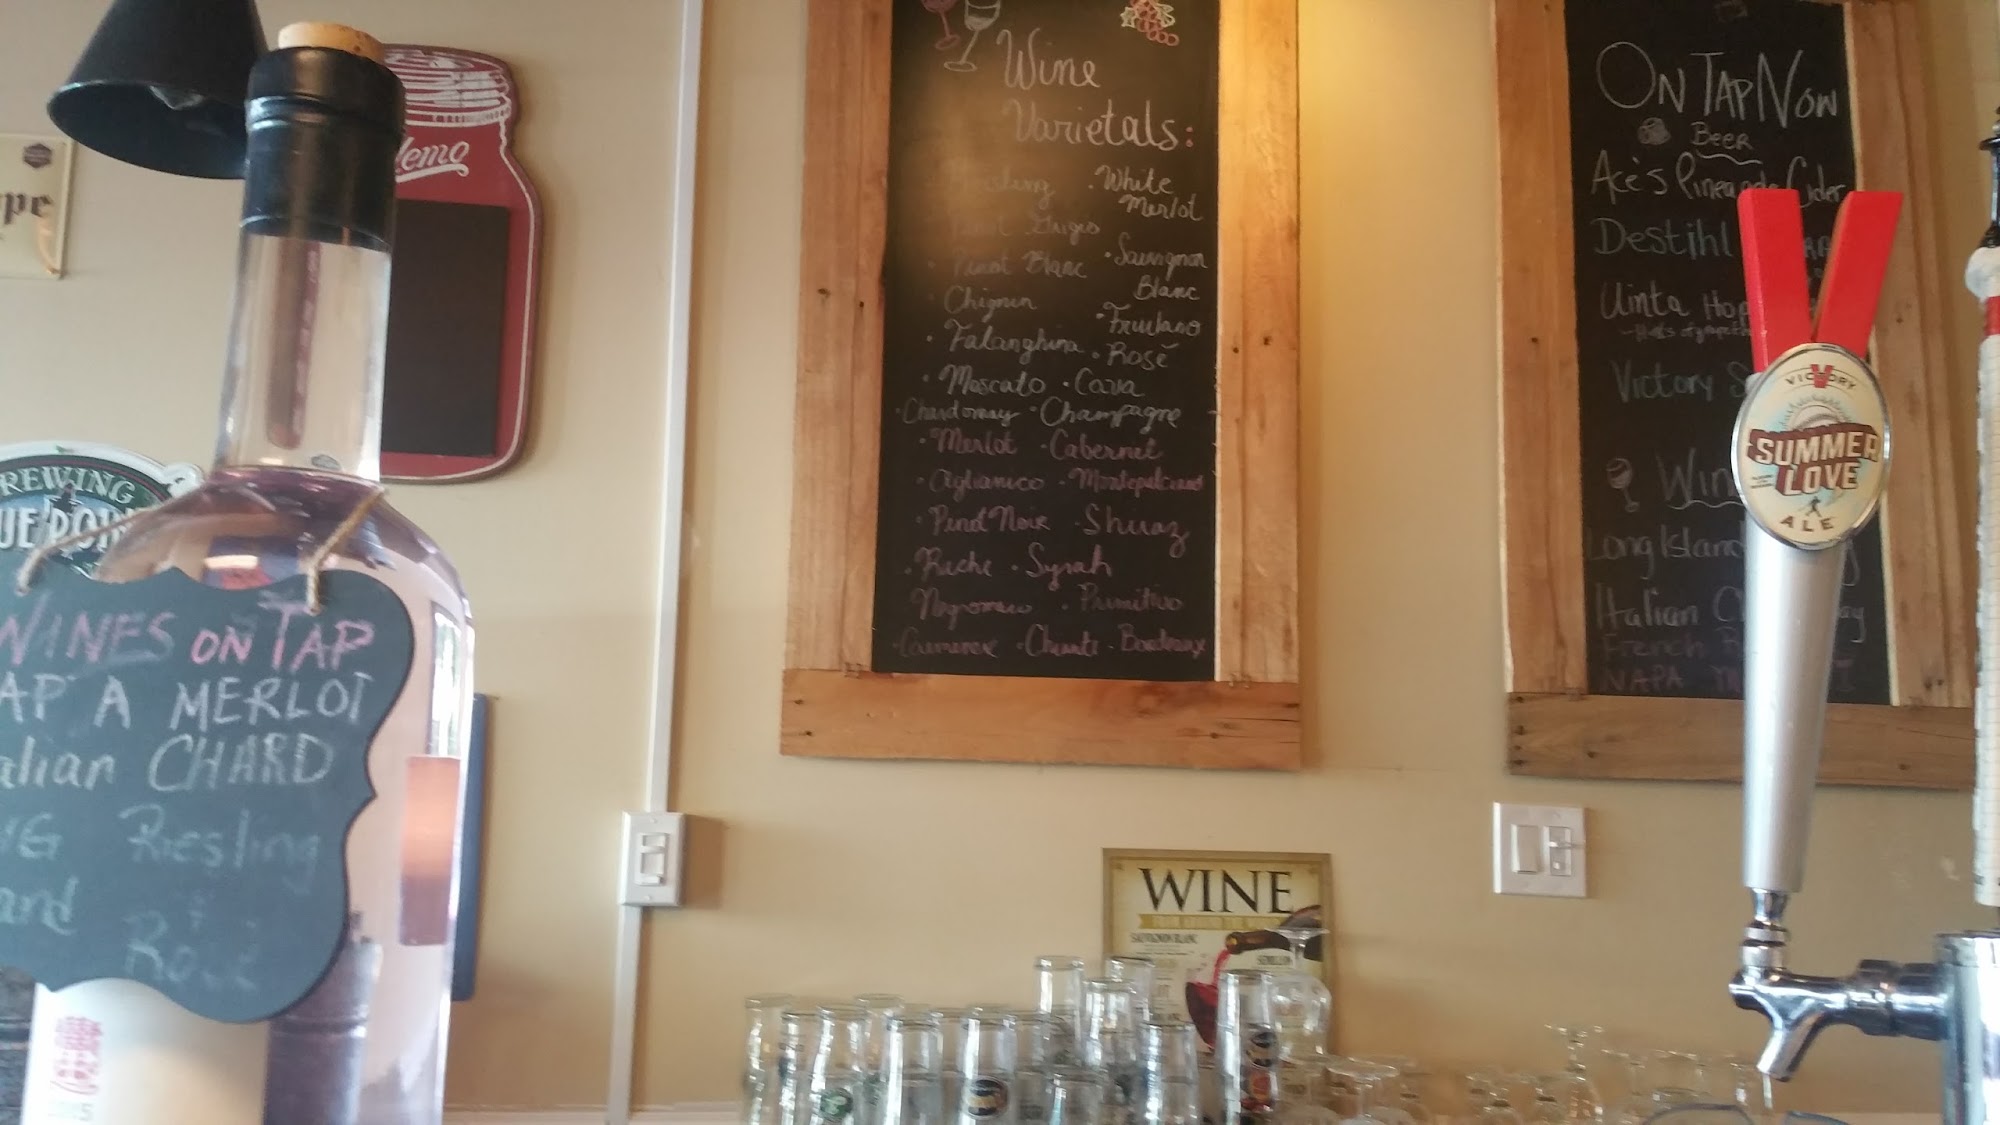 Wine
Varietals:
Riesling
· White
Merlot
Pinot Grigio
· Pinot Blanc
· Sauvignon
Blanc
· Chignin
· Friulano
· Falanghina
· Rosé
· Moscato
· Cava
· Chardonnay
· Champagne
· Merlot
· Cabernet
· Aglianico
· Montepulciano
· Pinot Noir
· Shiraz
· Ruche
· Syrah
· Primitivo
· Chianti
· Bordeaux
On Tap Now
Beer
Ace's Pineapple Cider
Destihl
Uinta Hop
Victory S
Win
Long Island
Italian C
French R
NAPA
VICTORY
SUMMER
LOVE
ALE
WINES ON TAP
AP A MERLOT
alian CHARD
Riesling
and
REWING
UE POIN
WINE
SAUVIGNON BLANC